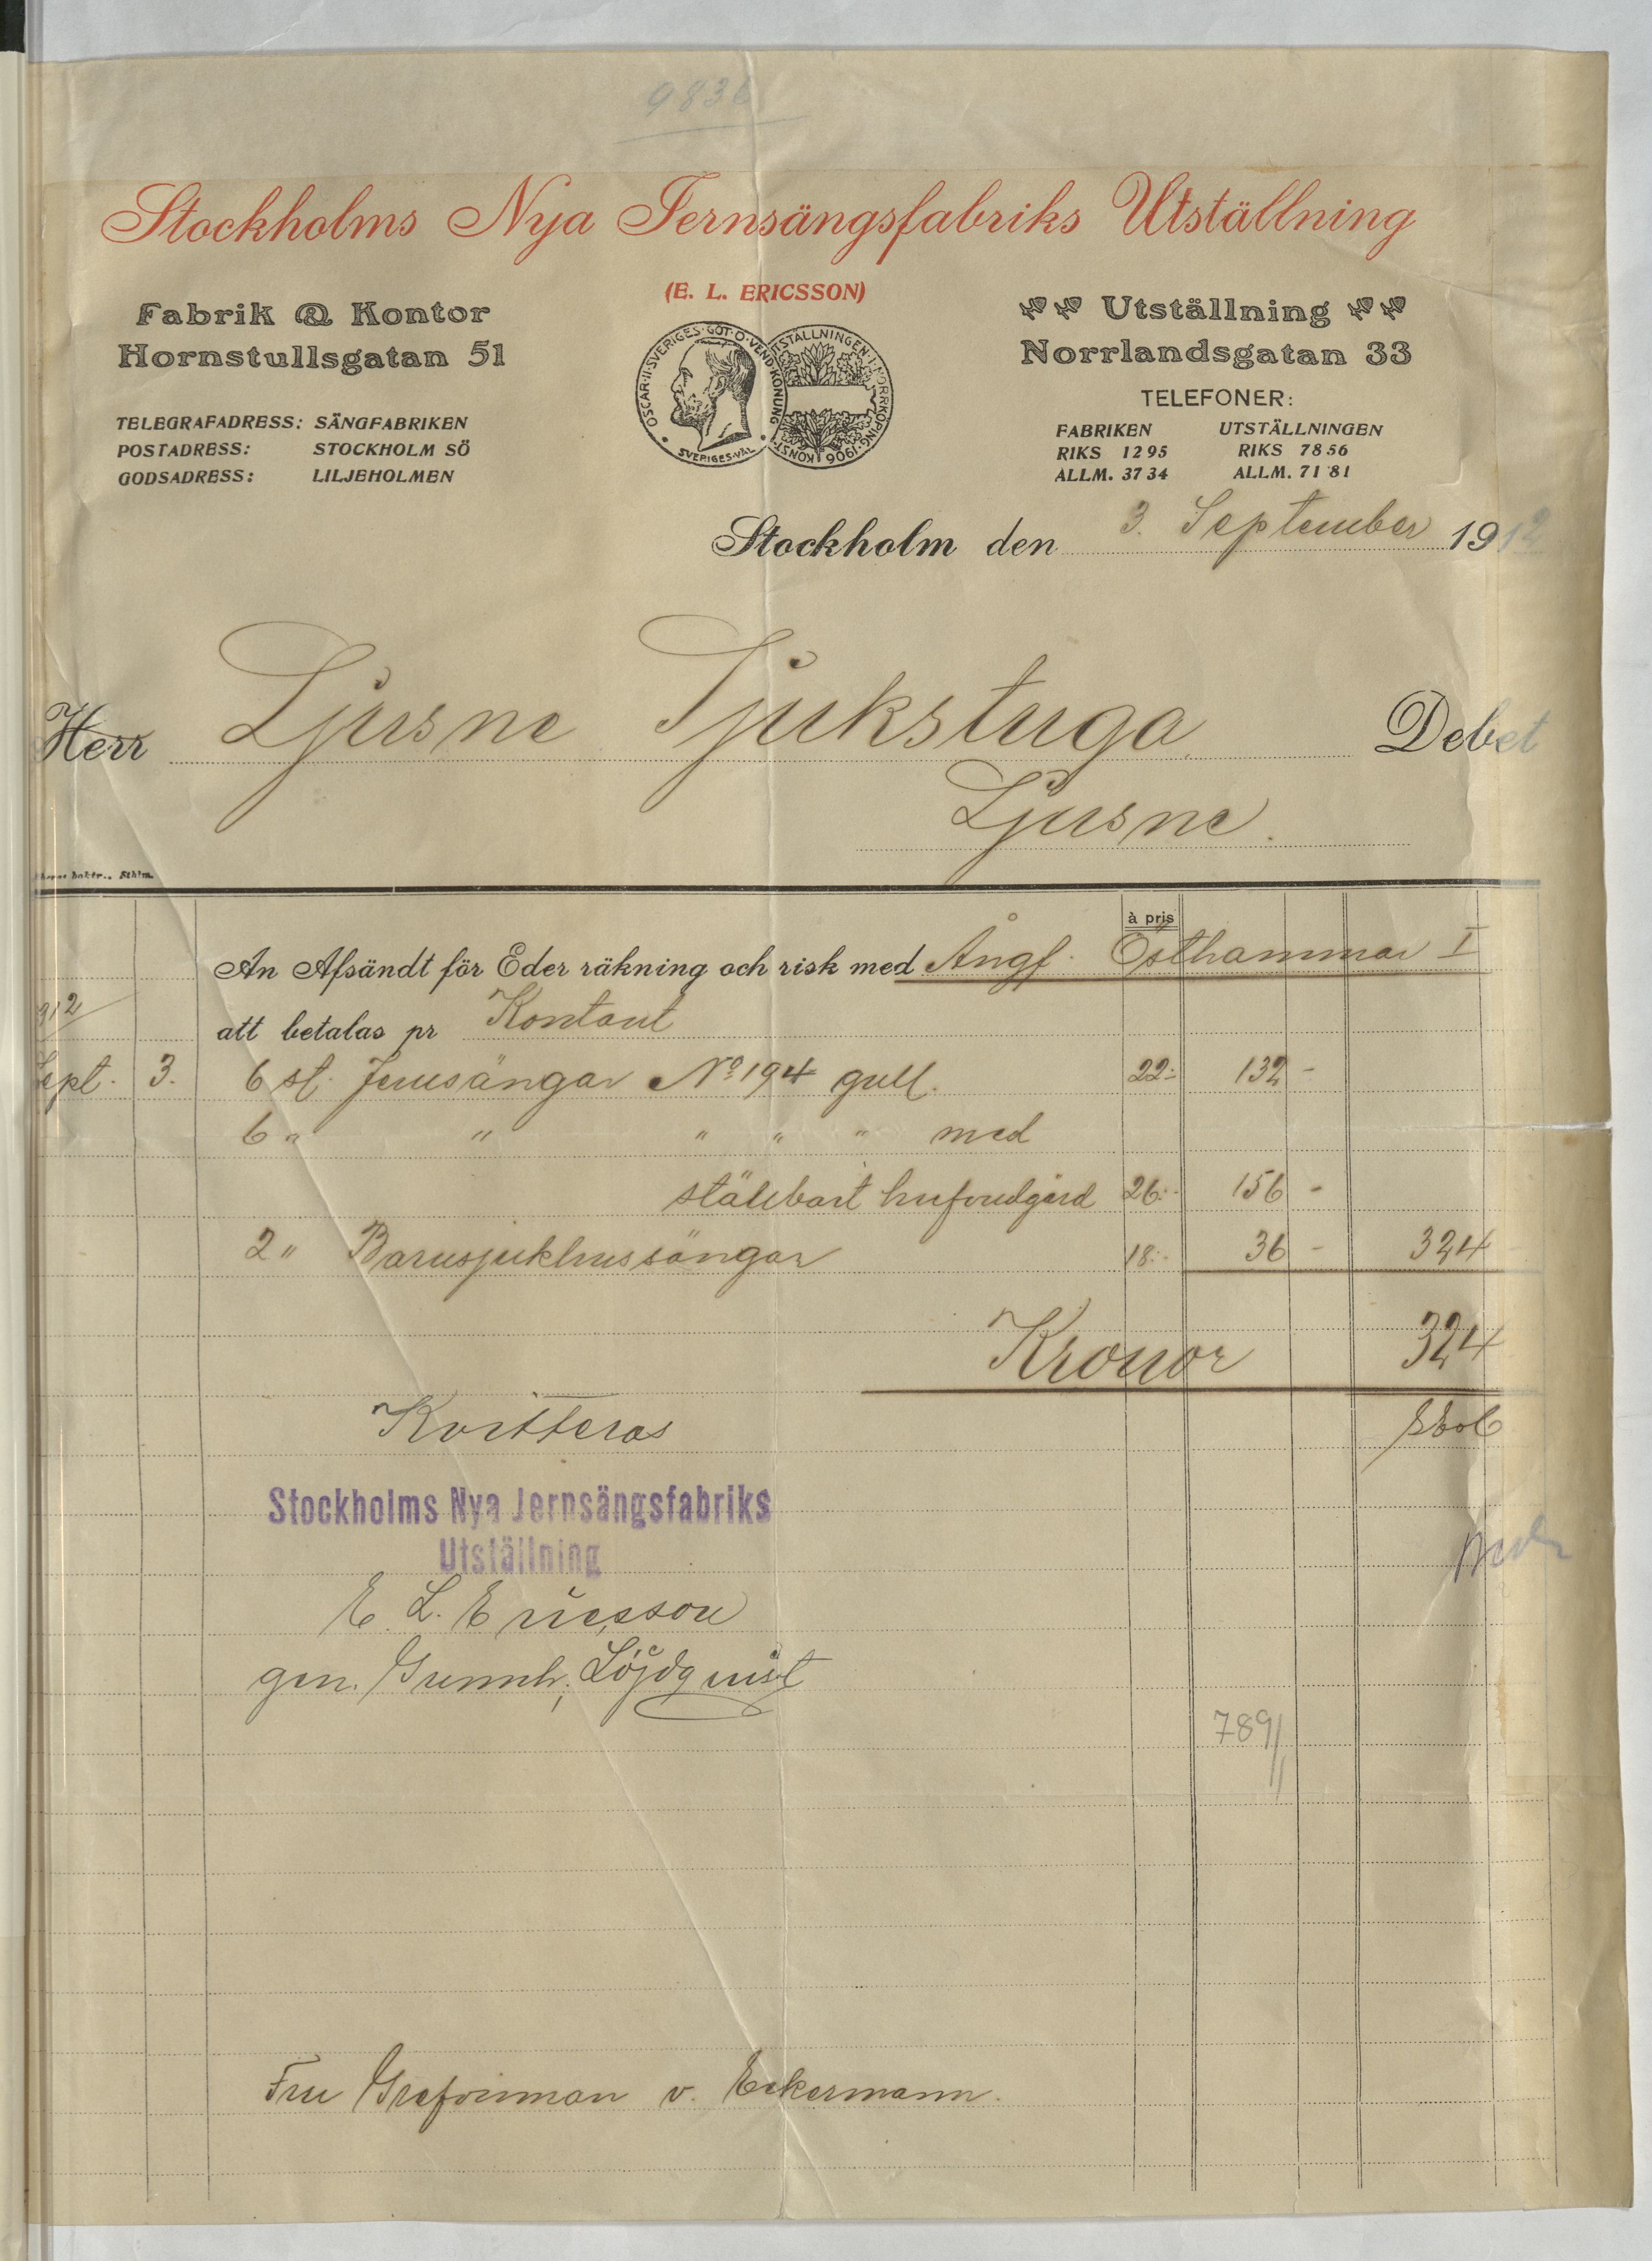 9836
Stockholms Nya Jernsängsfabriks Utställning
(E. L. ERICSSON)
Fabrik & Kontor
Hornstullsgatan 51
TELEGRAFADRESS: SÄNGFABRIKEN
POSTADRESS: STOCKHOLM SÖ
GODSADRESS: LILJEHOLMEN
OSCAR·II·SVERIGES·GÖT·O·VEND·KONUNG
SVERIGES·VÄL
KONST UTSTÄLLNINGEN·I·NORRKÖPING·1906
Utställning
Norrlandsgatan 33
TELEFONER:
FABRIKEN UTSTÄLLNINGEN
RIKS 12 95 RIKS 78 56
ALLM. 37 34 ALLM. 71 81
Stockholm den 3. September 1912
Herr Ljusne Sjukstuga Debet
Ljusne.
boktr., Sthlm.
à pris
An Afsändt för Eder räkning och risk med Ångf. Östhammar I
912
att betalas pr Kontant
Sept. 3. 6 st. Jernsängar No 194 gull. 22:- 132 -
6 " " " " " med
ställbart hufvudgärd 26:- 156 -
2 " Barnsjukhussängar 18:- 36 - 324
Kronor 324
Kvitteras
Stockholms Nya Jernsängsfabriks
Utställning
E. L. Ericsson
gm. Gunnh. Löjdquist
789
Fru Grefvinnan v. Eckermann.